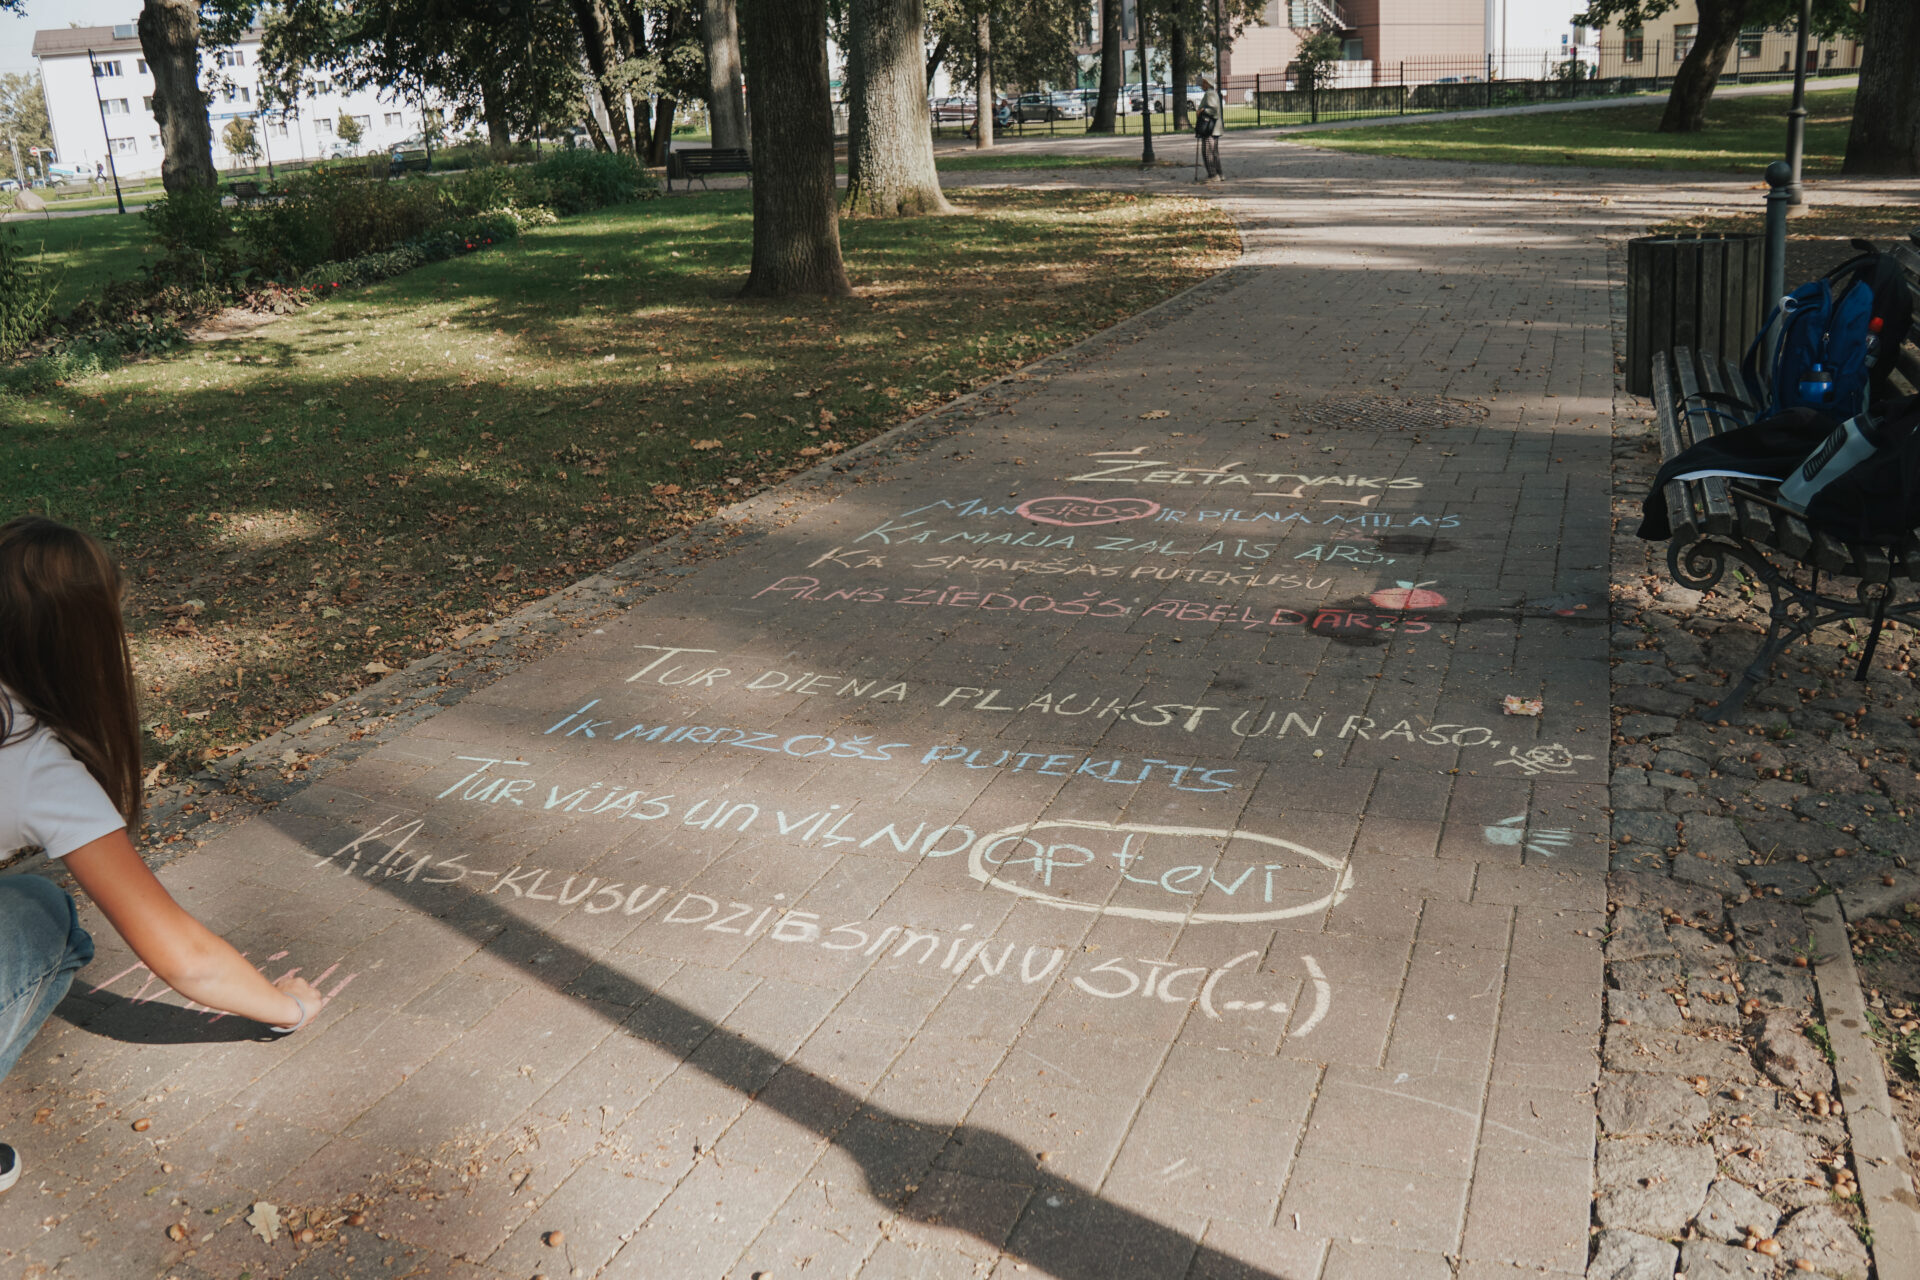 ZELTATVAIKS
MAN SIRDS IR PILNA MĪLAS
KĀ MAIJA ZAĻAIS ĀRS,
KĀ SMARŠAS PUTEKLĪŠU
PILNS ZIEDOŠS ĀBEĻDĀRZS
TUR DIENA PLAUKST UN RASO,
IK MIRDZOŠS PUTEKLĪTS
TUR VIJAS UN VIĻŅO ap tevi
Klus-KLUSU DZIESMIŅU STC(...)